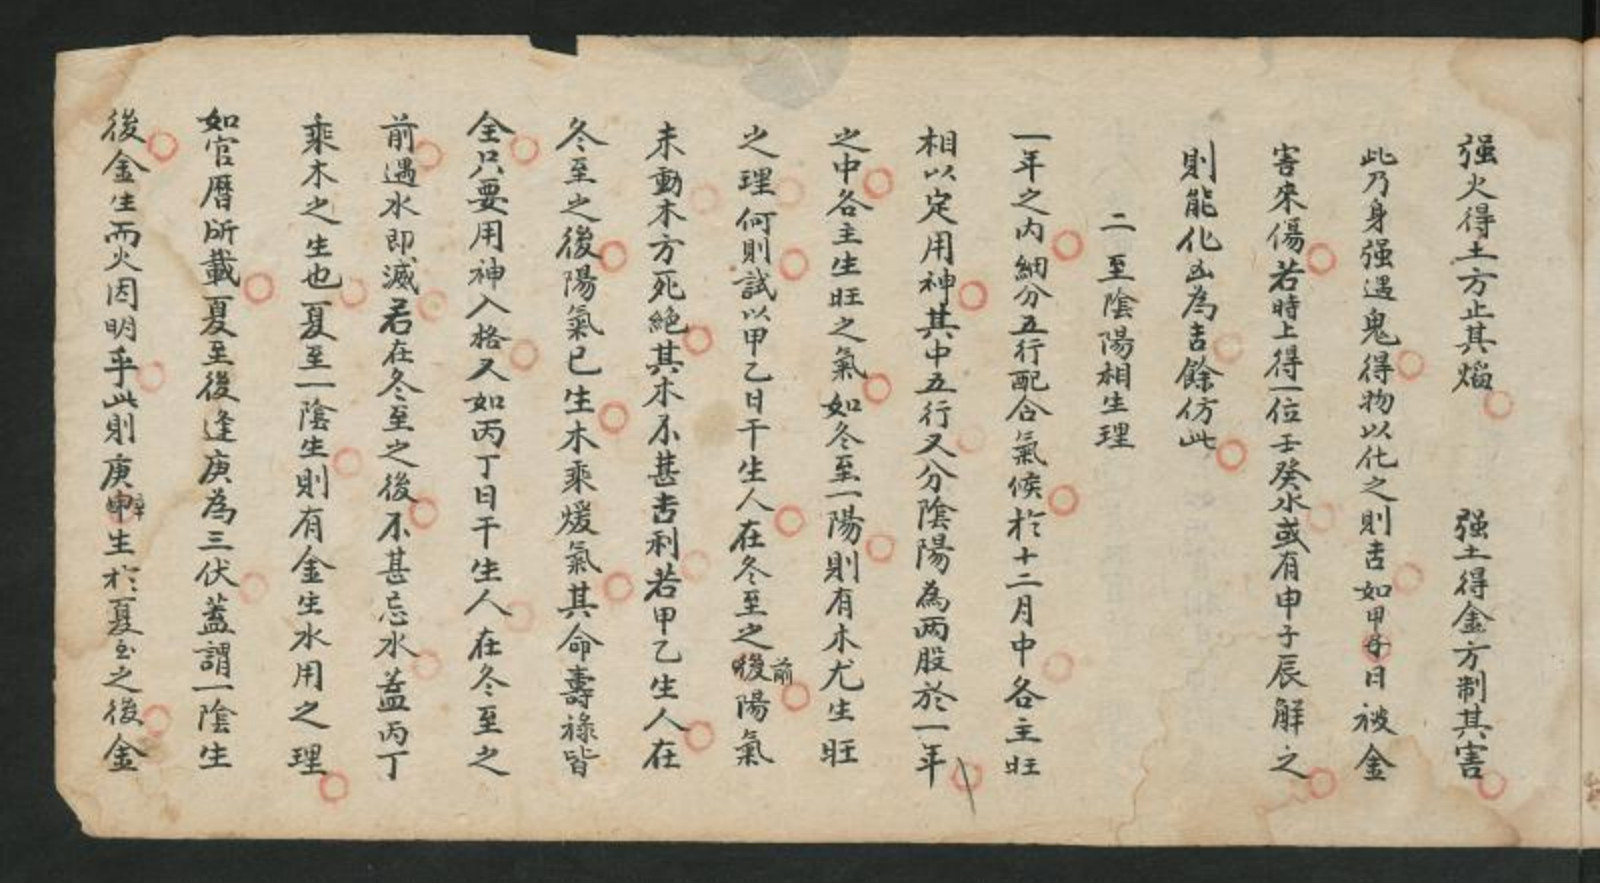 强火得土方止其焰　强土得金方制其害
此乃身强遇鬼得物以化之則吉如甲子日被金
害來傷若時上得一位壬癸水或有申子辰解之
則能化凶為吉餘仿此
二至陰陽相生理
一年之內細分五行配合氣候於十二月中各主旺
相以定用神其中五行又分陰陽為兩股於一年
之中各主生旺之氣如冬至一陽則有木尤生旺
之理何則試以甲乙日干生人在冬至之後前陽氣
未動木方死絶其木不甚吉利若甲乙生人在
冬至之後陽氣已生木乘煖氣其命壽祿皆
全只要用神入格又如丙丁日干生人在冬至之
前遇水即滅若在冬至之後不甚忌水蓋丙丁
乘木之生也夏至一陰生則有金生水用之理
如官曆所載夏至後逢庚為三伏蓋謂一陰生
後金生而火因明乎此則庚申辛生於夏至之後金